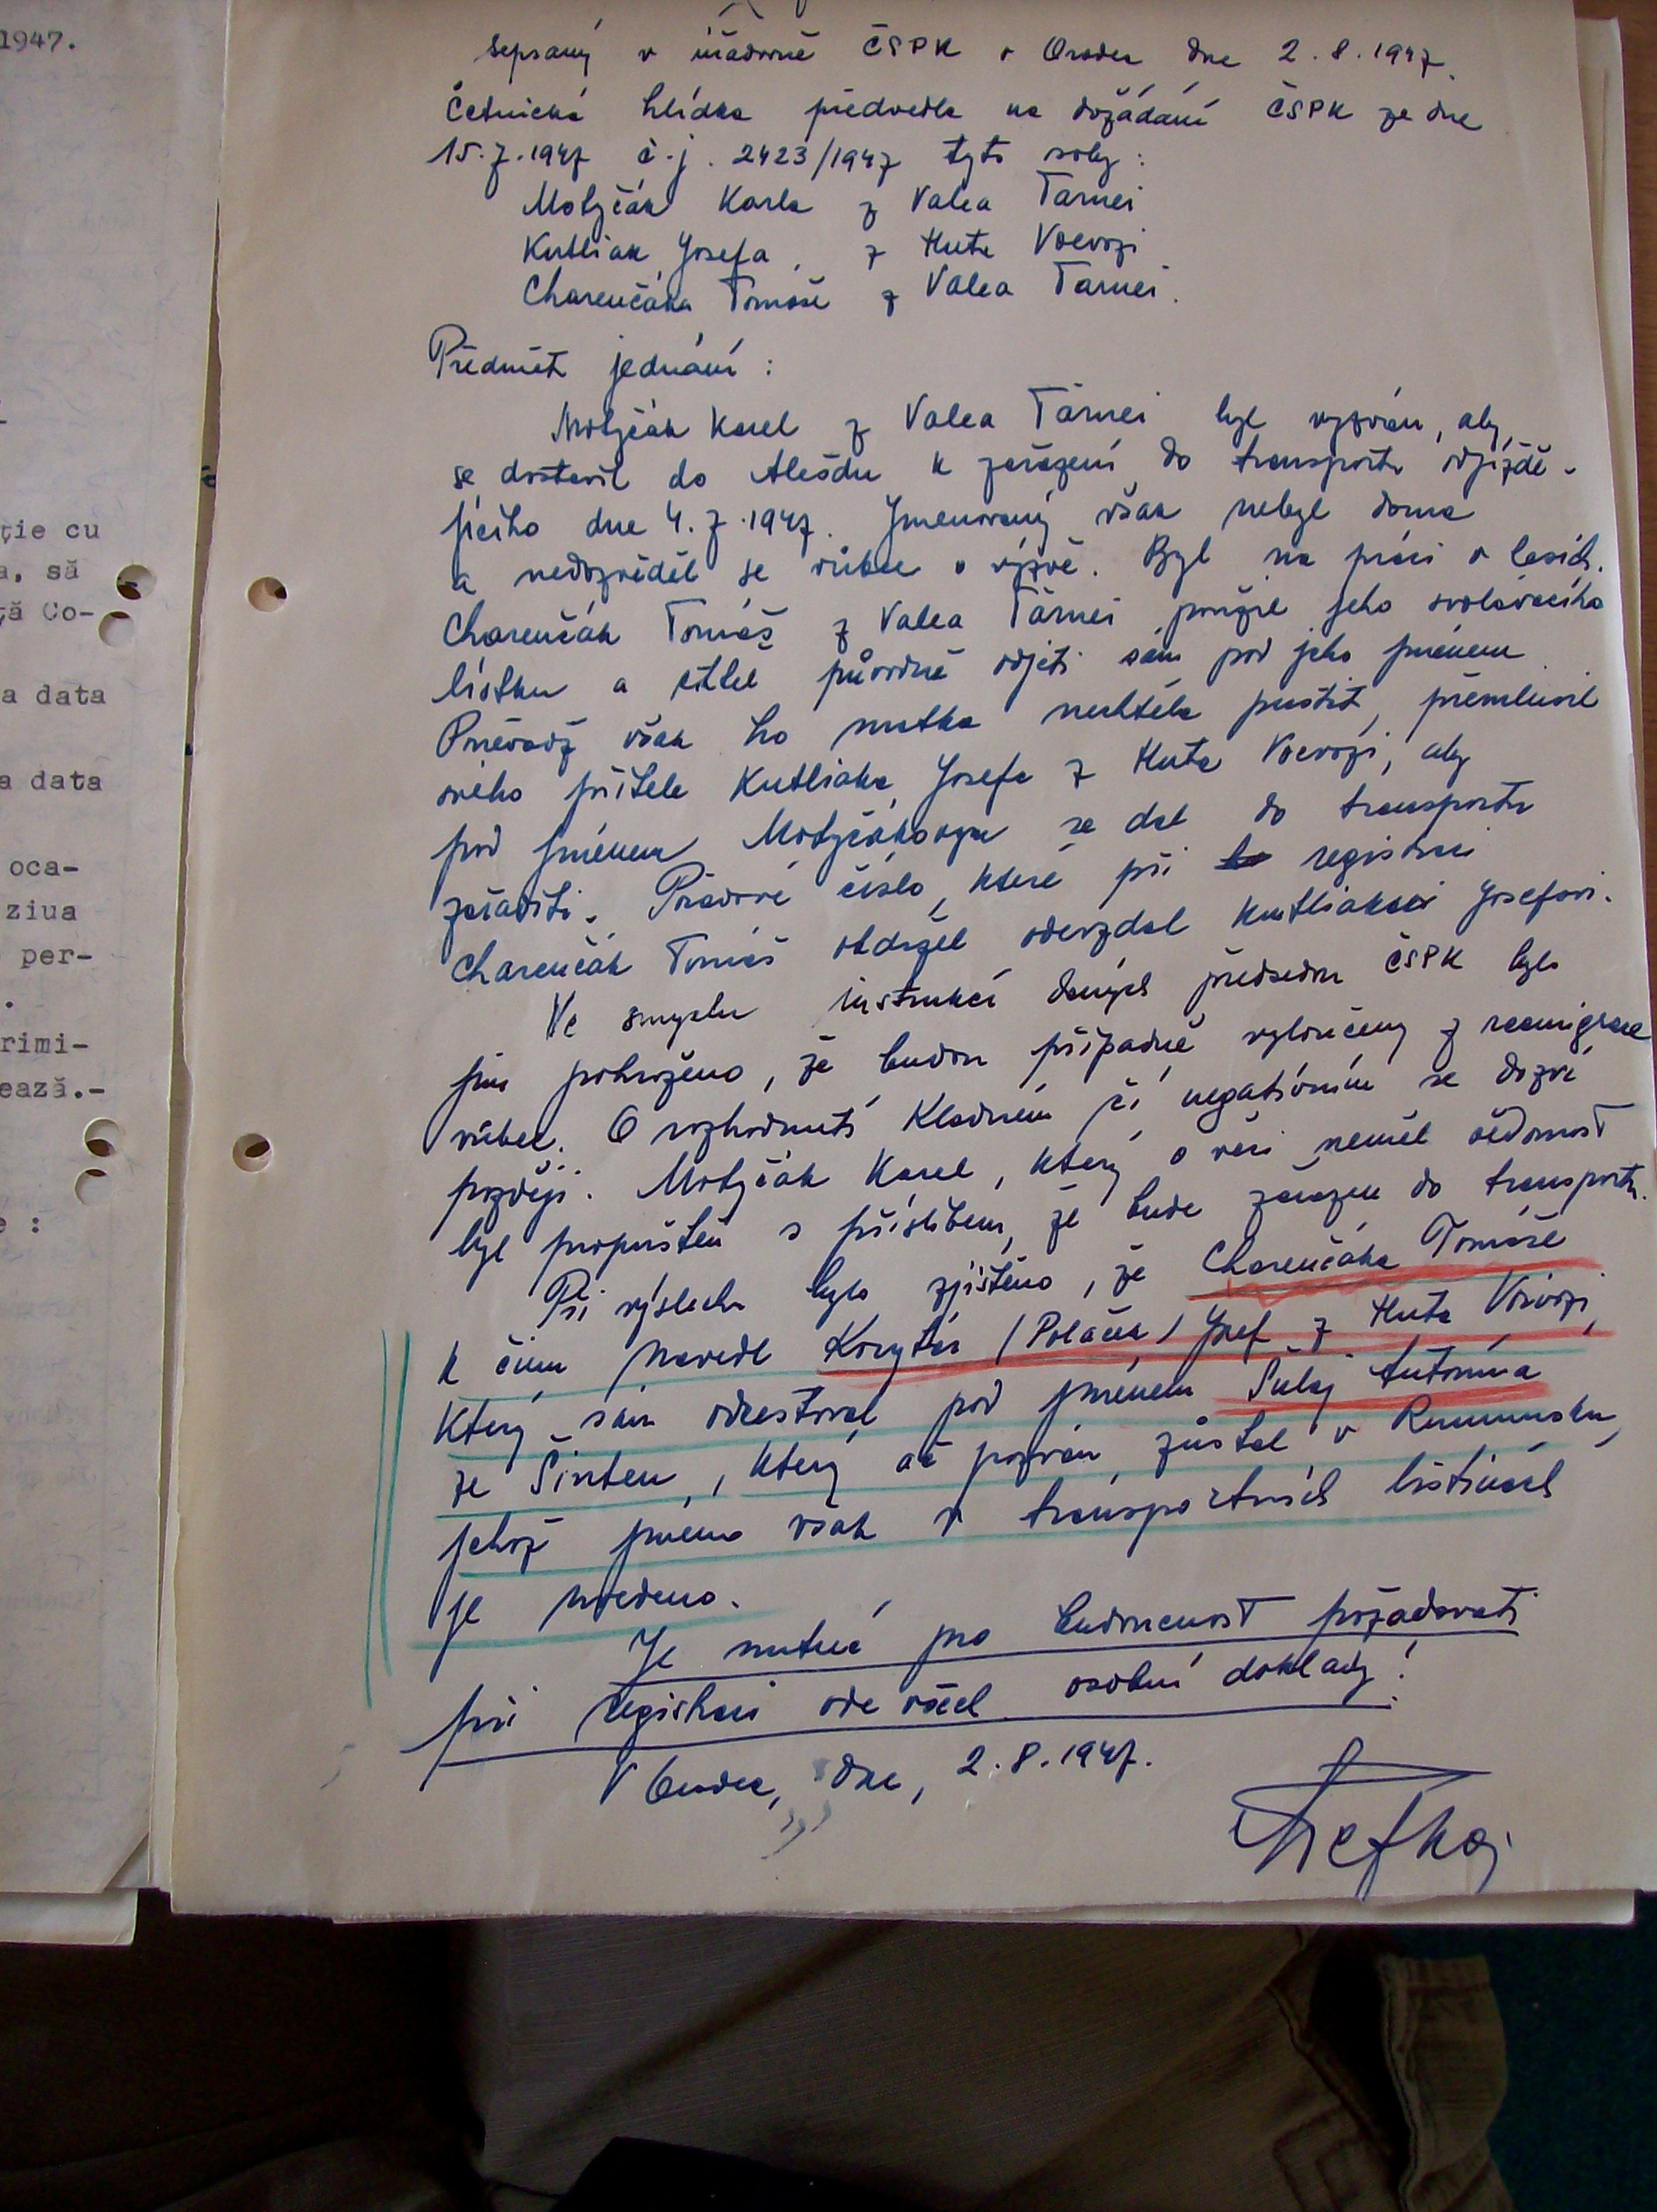 1947.
ție cu
a, să
ță Co-
a data
a data
oca-
ziua
per-
.
rimi-
ează.-
e :
sepsaný v úřadovně ČSPK v Oradea dne 2.8.1947.
Četnická hlídka předvedla na dožádání ČSPK ze dne
15.7.1947 č.j. 2423/1947 tyto osoby:
Motyčák Karla z Valea Tarnei
Kutliak Josefa, z Huta Voevozi
Charenčáka Tomáše z Valea Tarnei.
Předmět jednání:
Motyčák Karel z Valea Tărnei byl vyzván, aby
se dostavil do Alešdu k zařazení do transportu odjíždě-
jícího dne 4.7.1947. Jmenovaný však nebyl doma
a nedozvěděl se vůbec o výzvě. Byl na práci v lesích.
Charenčák Tomáš z Valea Tărnei použil jeho svolávacího
lístku a chtěl původně odjeti sám pod jeho jménem.
Poněvadž však ho matka nechtěla pustit, přemluvil
svého přítele Kutliaka Josefa z Huta Voevozi, aby
pod jménem Motyčákovým se dal do transportu
zařaditi. Pořadové číslo, které při registraci
Charenčák Tomáš obdržel odevzdal Kutliakovi Josefovi.
Ve smyslu instrukcí daných předsedou ČSPK bylo
jim pohroženo, že budou případně vyloučeny z reemigrace
vůbec. O rozhodnutí kladném či negativním se dozví
později. Motyčák Karel, který o věci neměl vědomost
byl propuštěn s příslibem, že bude zařazen do transportu.
Při výslechu bylo zjištěno, že Charenčáka Tomáše
k činu navedl Korytár (Polaček) Josef z Huta Voivozi,
který sám odcestoval pod jménem Šulaj Antonína
ze Šinteu, který ač pozván, zůstal v Rumunsku,
jehož jméno však v transportních listinách
je uvedeno.
Je nutné pro budoucnost požadovati
při registraci ode všech osobní doklady!
V Oradea, dne, 2.8.1947.